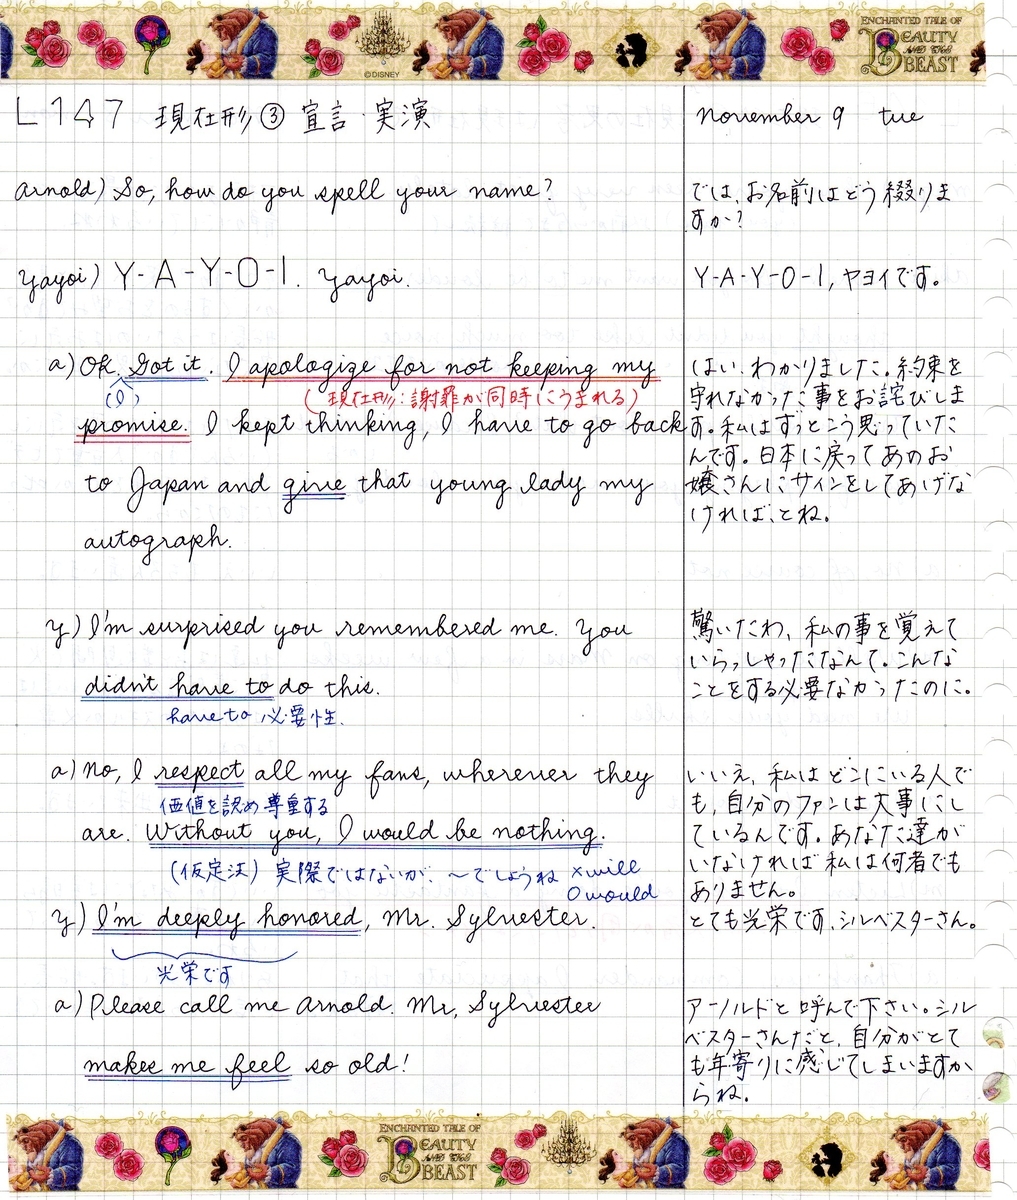 ENCHANTED TALE OF
BEAUTY
AND THE
BEAST
©DISNEY
L147 現在形③ 宣言・実演
November 9 tue
Arnold) So, how do you spell your name?
では、お名前はどう綴りま
すか?
Yayoi) Y-A-Y-O-I. Yayoi.
Y-A-Y-O-I, ヤヨイです。
a) Ok. Got it. I apologize for not keeping my
(I)
(現在形:謝罪が同時にうまれる)
promise. I kept thinking, I have to go back
to Japan and give that young lady my
autograph.
はい、わかりました。約束を
守れなかった事をお詫びしま
す。私はずっとこう思っていた
んです。日本に戻ってあのお
嬢さんにサインをしてあげな
ければ、とね。
y) I'm surprised you remembered me. You
didn't have to do this.
have to 必要性.
驚いたわ、私の事を覚えて
いらっしゃったなんて。こんな
ことをする必要なかったのに。
a) No, I respect all my fans, wherever they
価値を認め尊重する
are. Without you, I would be nothing.
(仮定法) 実際ではないが、〜でしょうね ×will
○would
いいえ、私はどこにいる人で
も、自分のファンは大事にし
ているんです。あなた達が
いなければ私は何者でも
ありません。
y) I'm deeply honored, Mr. Sylvester.
光栄です
とても光栄です、シルベスターさん。
a) Please call me Arnold. Mr, Sylvester
makes me feel so old!
アーノルドと呼んで下さい。シル
ベスターさんだと、自分がとて
も年寄りに感じてしまいますか
らね。
ENCHANTED TALE OF
BEAUTY
AND THE
BEAST